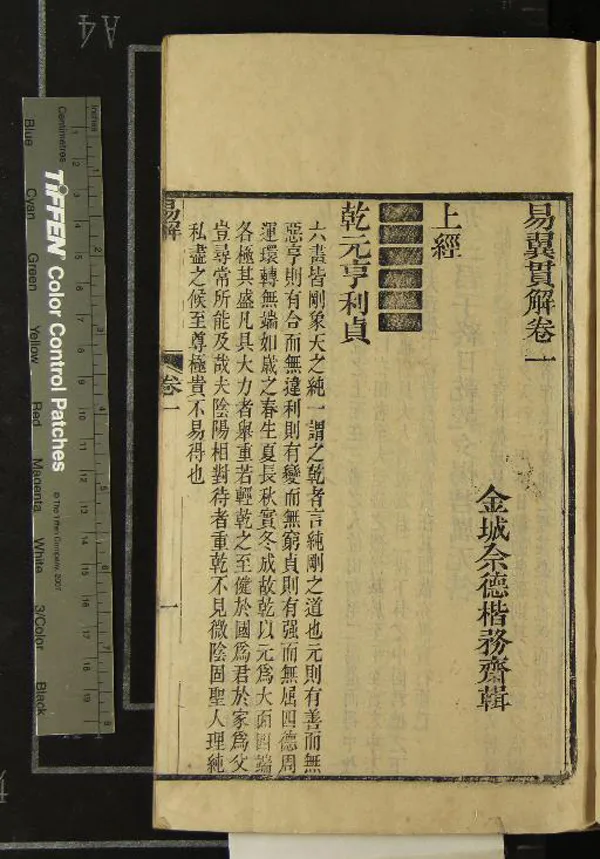 易翼貫解卷一
金城佘德楷務齋輯
上經
乾元亨利貞
六畫皆剛象天之純一謂之乾者言純剛之道也元則有善而無
惡亨則有合而無違利則有變而無窮貞則有强而無屈四德周
運環轉無端如歲之春生夏長秋實冬成故乾以元爲大而四端
各極其盛凡具大力者舉重若輕乾之至健於國爲君於家爲父
豈尋常所能及哉夫陰陽相對待者重乾不見微陰固聖人理純
私盡之候至尊極貴不易得也
易解
卷一
一
A4
Inches
Centimetres
TIFFEN Color Control Patches
© The Tiffen Company, 2007
Blue
Cyan
Green
Yellow
Red
Magenta
White
3/Color
Black